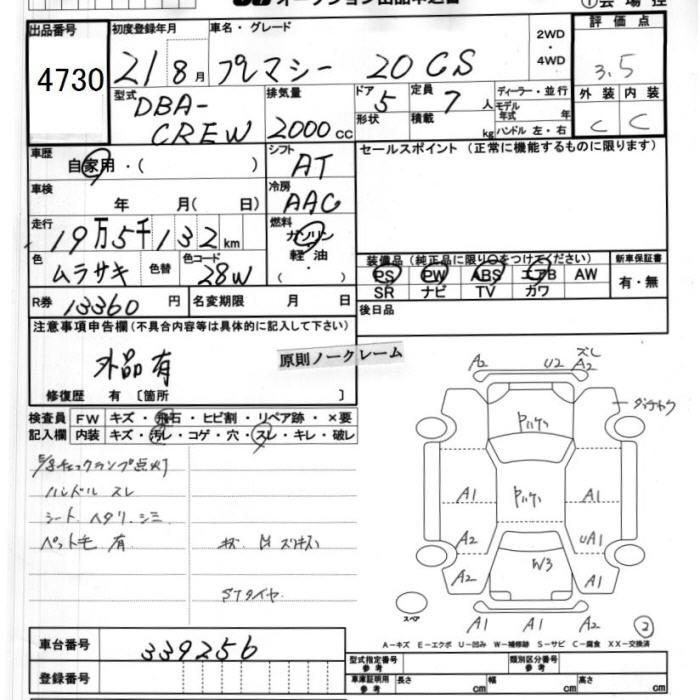 オークション出品申込書
出品番号 4730
初度登録年月 21 8月
車名・グレード プレマシー 20CS
2WD・4WD
評価点 3.5
外装 C 内装 C
型式 DBA-CREW
排気量 2000cc
ドア 5 形状
定員 7人 積載 kg
ディーラー・並行
モデル年式 年
ハンドル 左・右
車歴 自家用・( )
シフト AT
セールスポイント (正常に機能するものに限ります)
車検 年 月( 日)
冷房 AAC
走行 19万5千132km
燃料 ガソリン 軽油・
色 ムラサキ 色替 色コード 28W
装備品 (純正品に限り○をつけてください)
新車保証書 有・無
PS PW ABS エアB AW
SR ナビ TV カワ
R券 13360円 名変期限 月 日
後日品
注意事項申告欄 (不具合内容等は具体的に記入して下さい)
外品有
原則ノークレーム
修復歴 有 [箇所 ]
検査員記入欄
FW キズ・飛石・ヒビ割・リペア跡・×要
内装 キズ・汚レ・コゲ・穴・スレ・キレ・破レ
チェックランプ点灯
ハンドル スレ
シート ヘタリ・シミ
ペット毛 有
STタイヤ
A2 U2 ズレ A2
A1 A1
A2 UA1
A2 W3 A1
A1 A1 A2
スペア
2
A-キズ E-エクボ U-凹み W-補修跡 S-サビ C-腐食 XX-交換済
車台番号 339256
登録番号
型式指定番号 参考
類別区分番号 参考
車庫証明用 参考 長さ cm 幅 cm 高さ cm